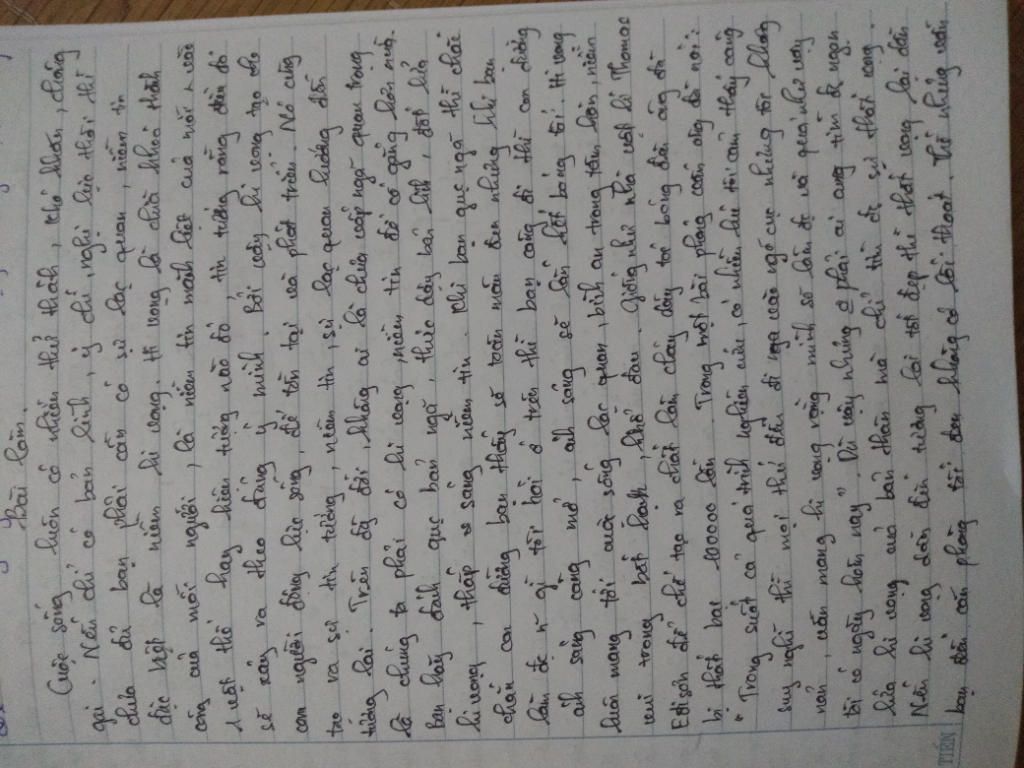 Bài làm.
Cuộc sống luôn có nhiều thử thách, khó khăn, chông
gai. Nếu chỉ có bản lĩnh, ý chí, nghị lực thôi thì
chưa đủ bạn phải cần có sự lạc quan, niềm tin
đặc biệt là niềm hi vọng. Hi vọng là chìa khoá thành
công của mỗi người, là niềm tin mãnh liệt của mỗi n vào
1 việt thể hay hiện tượng nào đó, tin tưởng rằng điều đó
sẽ xảy ra theo đúng ý mình. Bởi vậy hi vọng tạo cho
con người động lực sống, để tồn tại và phát triển. Nó cũng
tạo ra sự tin tưởng, niềm tin, sự lạc quan hướng đến
tương lai. Trên đời, chẳng ai là chưa vấp ngã quan trọng
là chúng ta phải có hi vọng, niềm tin để cố gắng hơn nữa.
Bạn hãy đánh gục bản ngã, thúc đẩy bản lĩnh, đốt lửa
hi vọng, thắp sáng niềm tin. Khi bạn gục ngã thì chắc
chắn con đường bạn thấy sẽ toàn màu đen nhưng khi bạn
làm đc n gì tồi hại ở trên thì bạn càng đi thì con đường
ánh sáng càng mở, ánh sáng sẽ lấn hết bóng tối. Hi vọng
luôn mang tới cuộc sống lạc quan, bình an trong tâm hồn, niềm
vui trong bất hạnh, khổ đau. Giống như nhà vật lí Thomas
Edison để chế tạo ra chất làm cháy dây tóc bóng đèn ông đã
bị thất bại 10000 lần. Trong một bài phỏng vấn ông đã nói:
" Trong suốt cả quá trình nghiên cứu, có nhiều lúc tôi cảm thấy càng
suy nghĩ thì mọi thứ đều đi vào ngõ cục nhưng tôi không
nản, vẫn mang hi vọng rằng mình sẽ làm đc và quả như vậy
tôi có ngày hôm nay". Vì vậy không phải ai cũng tìm đc ngọn
lửa hi vọng của bản thân mà chỉ tìm đc sự thất vọng.
Nếu hi vọng dẫn đến tương lai tốt đẹp thì thất vọng lại dẫn
bạn đến căn phòng tối đen không có lối thoát. Thế nhưng vẫn
TIẾN